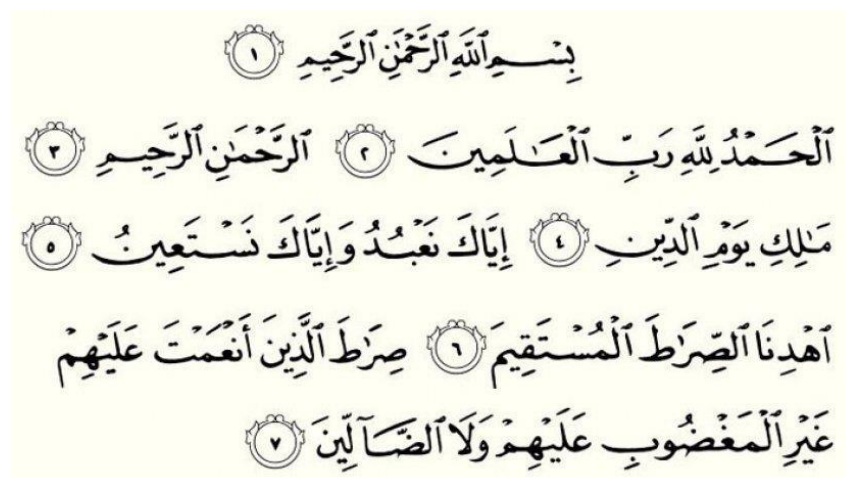 بِسْمِ ٱللَّهِ ٱلرَّحْمَٰنِ ٱلرَّحِيمِ ١
ٱلْحَمْدُ لِلَّهِ رَبِّ ٱلْعَـٰلَمِينَ ٢ ٱلرَّحْمَٰنِ ٱلرَّحِيمِ ٣
مَٰلِكِ يَوْمِ ٱلدِّينِ ٤ إِيَّاكَ نَعْبُدُ وَإِيَّاكَ نَسْتَعِينُ ٥
ٱهْدِنَا ٱلصِّرَٰطَ ٱلْمُسْتَقِيمَ ٦ صِرَٰطَ ٱلَّذِينَ أَنْعَمْتَ عَلَيْهِمْ
غَيْرِ ٱلْمَغْضُوبِ عَلَيْهِمْ وَلَا ٱلضَّآلِّينَ ٧